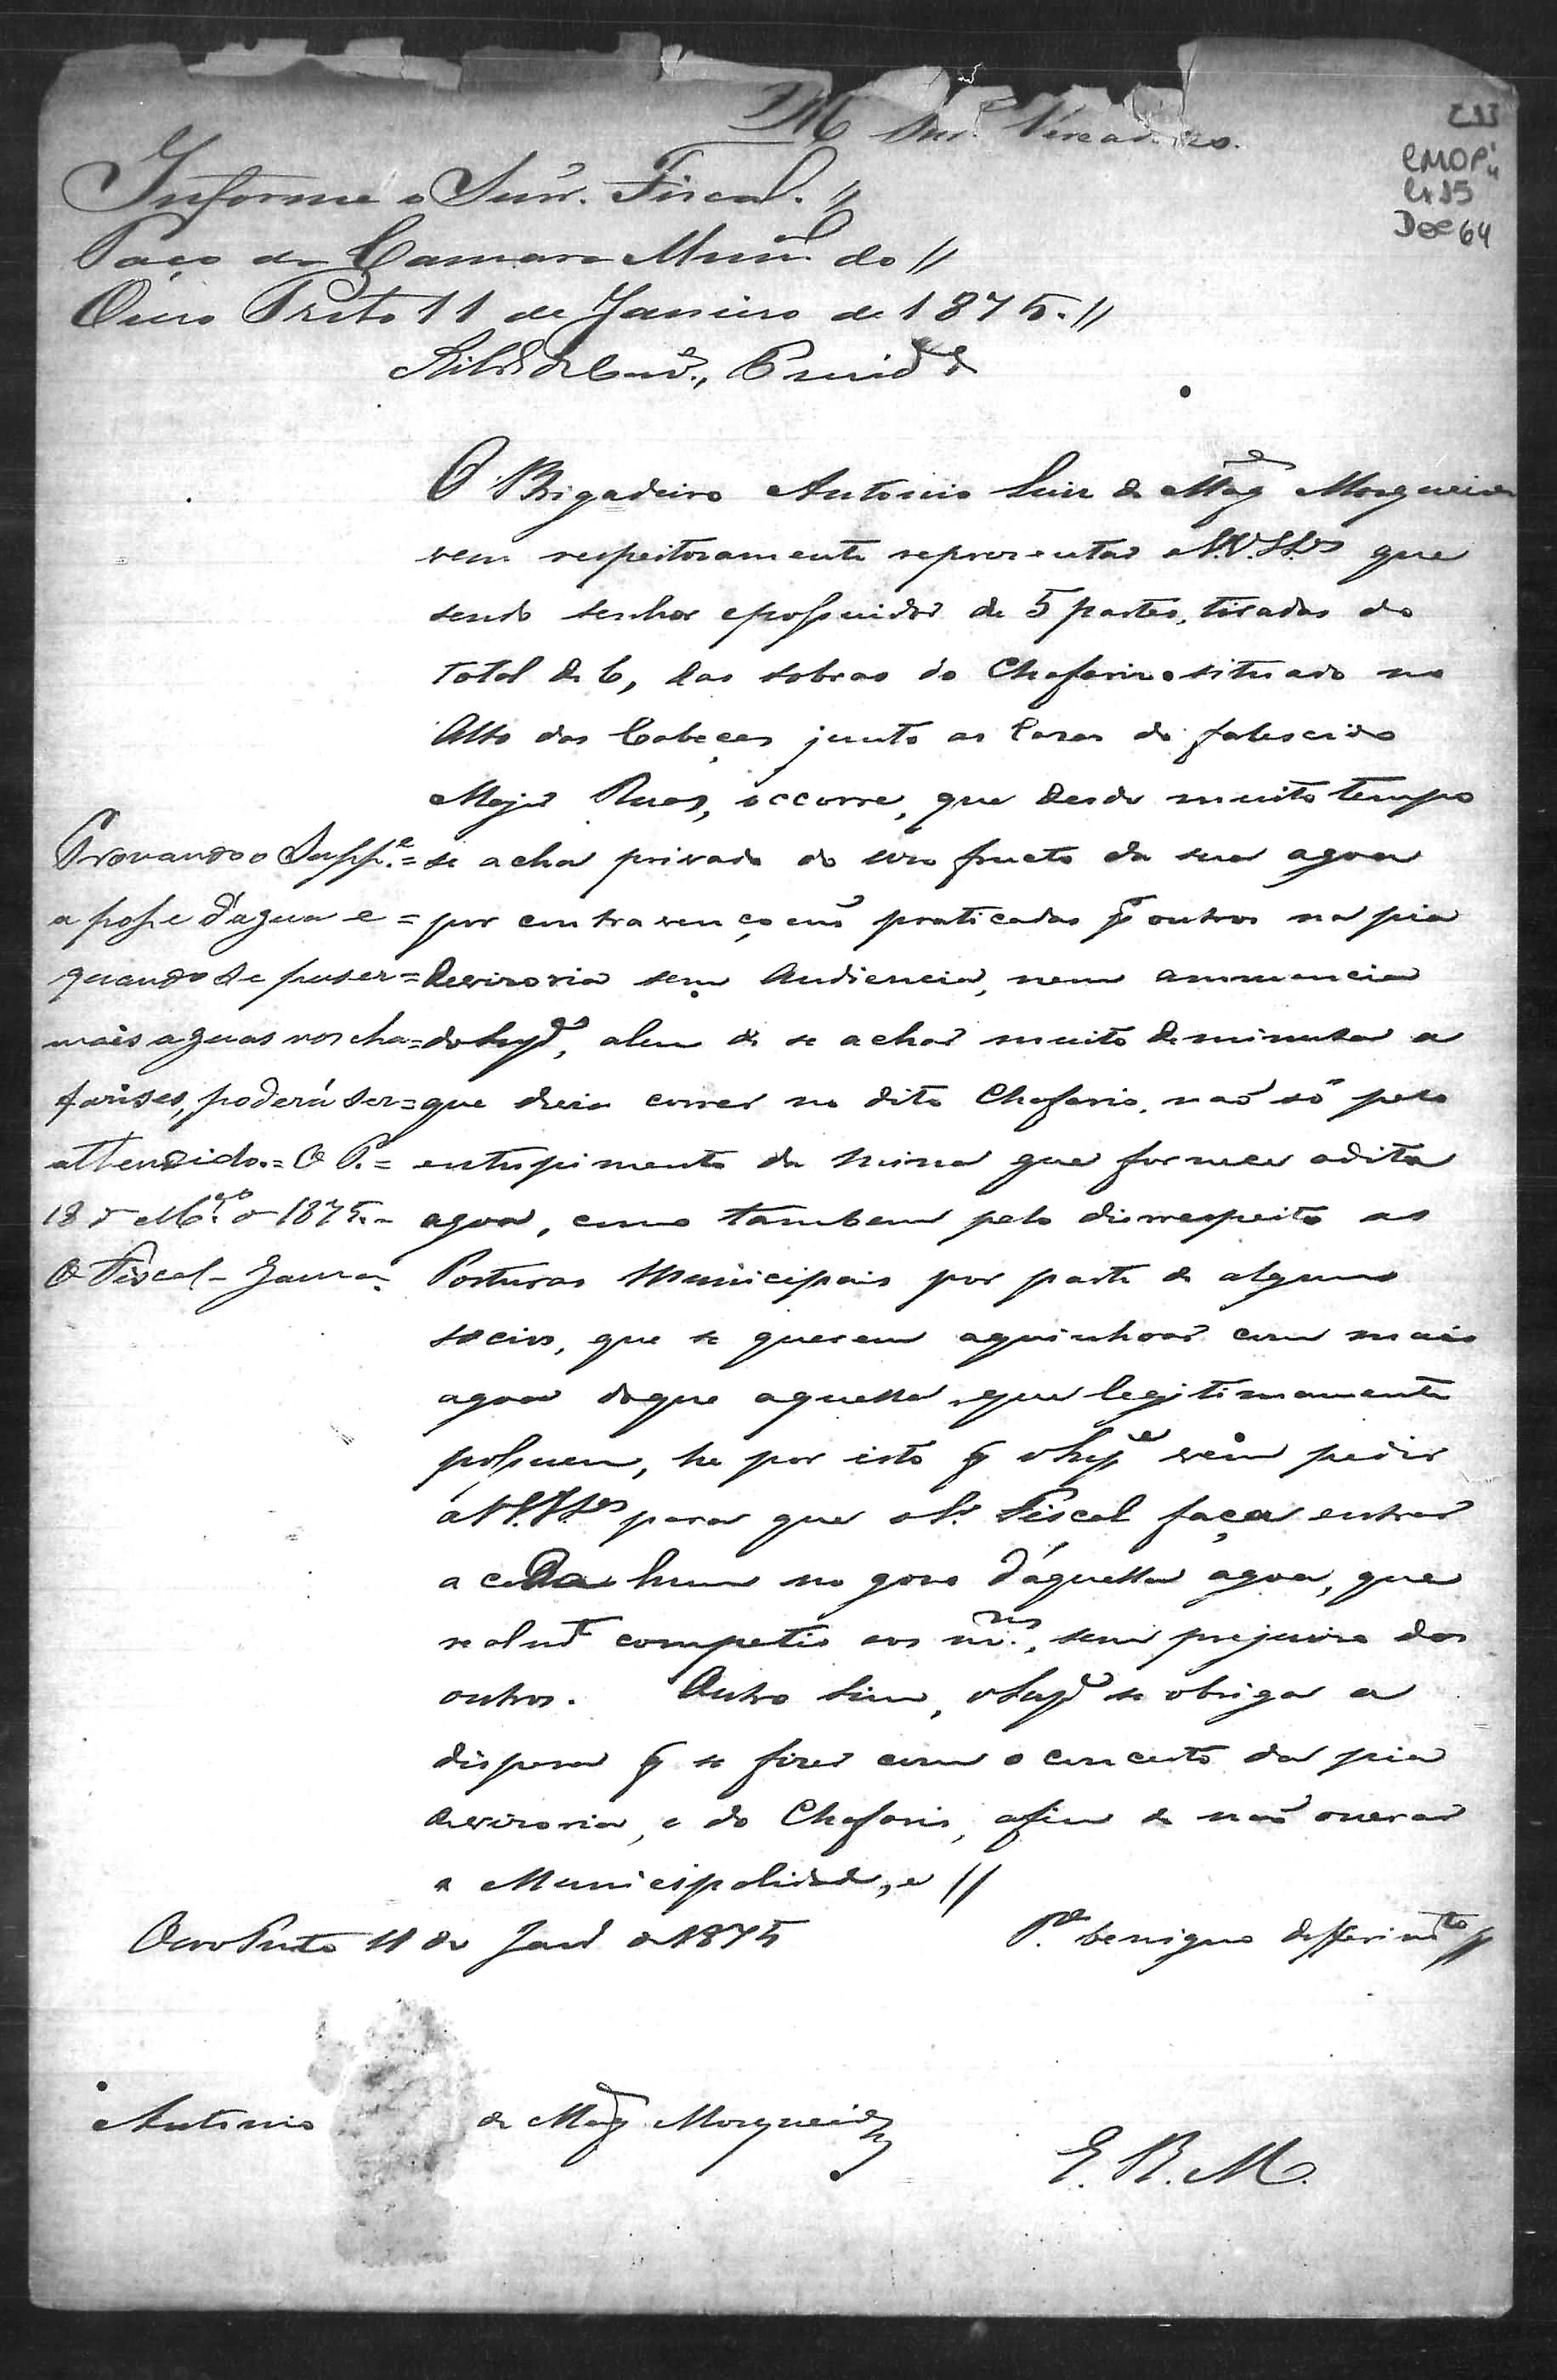 Snr.es Vereadores.
CMOP
Cx 35
Doc 64
Informe o Snr. Fiscal. //
Paço da Camara Mun. do //
Ouro Preto 11 de Janeiro de 1875. //
O Brigadeiro Antonio Luiz de Mag.es Mosqueira
vem respeitosamente reprezentar a V.V.SS.as que
sendo senhor e possuidor de 5 partes, tiradas do
total de 6, das sobras do Chafariz situado no
Alto das Cabeças junto as Casas do falescido
Major Ruas, occorre, que desde muito tempo
se acha privado do uzo fructo da sua agoa
por contravençoens praticadas p.r outros na pia
devizoria sem audiencia, nem annuencia
do Sup.e, alem de se achar muito deminuta a
que devia correr no dito Chafariz, naõ só pelo
entupimento da mina que fornece a dita
agoa, como tambem pelo disrespeito as
Posturas Municipais por parte de alguns
socios, que se querem aquinhoar com mais
agoa do que aquella que legitimamente
possuem, he por isto q o Sup.e vem pedir
a V.V.SS.as para que o Sr. Fiscal faça entrar
a cada hum no gozo d'aquella agoa, que
realm.te competir aos m.mos, sem prejuizo dos
outros. Outro sim, o Sup.e se obriga a
dispesa q se fizer com o concerto da pia
devizoria, e do Chafariz, afim de naõ onerar
a Municipalidade, e //
P.e benigno defferim.to //
Ouro Preto 11 de Janr.o de 1875
Antonio de Mag.es Mosqueira
E. R. M.
Provando o Supp.e =
a posse d'agua e =
quando se puser =
mais aguas nos cha=
farises, poderá ser =
attendido. = O P. =
18 de M.ço de 1875. =
O Fiscal -